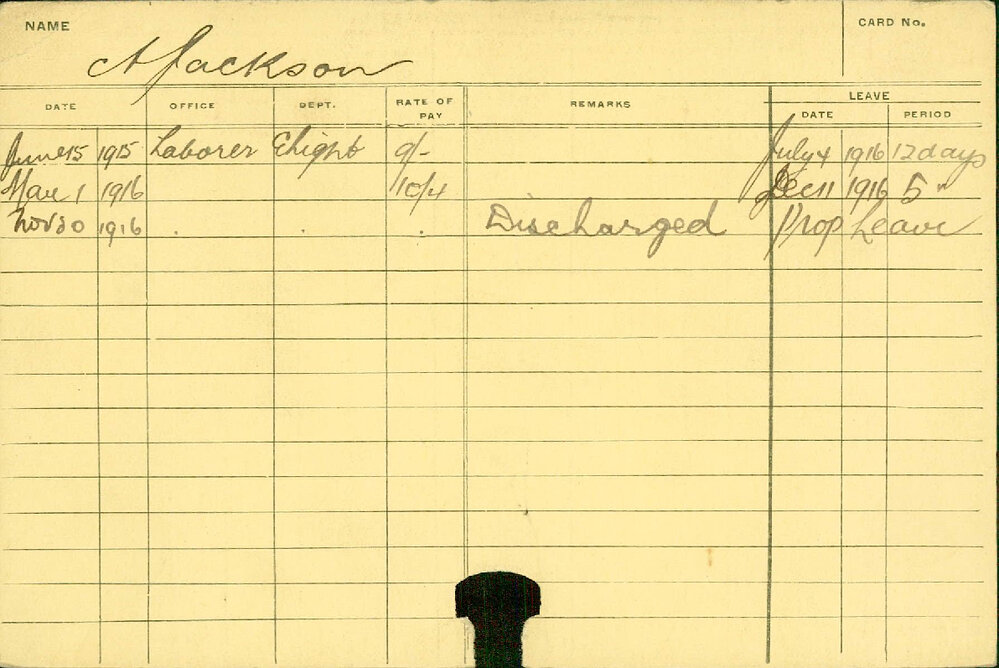 NAME
CARD No.
A Jackson
DATE OFFICE DEPT. RATE OF PAY REMARKS LEAVE
DATE PERIOD
June 15 1915 Laborer Elight 9/- July 4 1916 12 days
Mar 1 1916 10/4 Dec 11 1916 5 "
Nov 30 1916 . . . Discharged Prop Leave